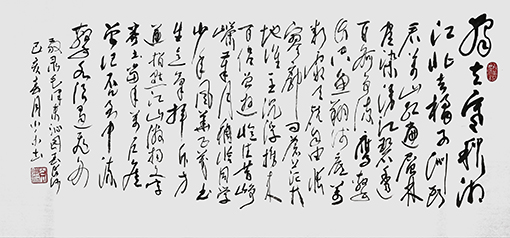 独立寒秋湘
江北去橘子洲头
看万山红遍层林
尽染漫江碧透
百舸争流鹰击
长空鱼翔浅底万
类霜天竞自由怅
寥廓问苍茫大
地谁主沉浮携来
百侣曾游忆往昔峥
嵘岁月稠恰同学
少年风华正茂书
生意气挥斥方
遒指点江山激扬文字
粪土当年万户侯
曾记否到中流
击水浪遏飞舟
敬录毛泽东沁园春长沙
己亥春月